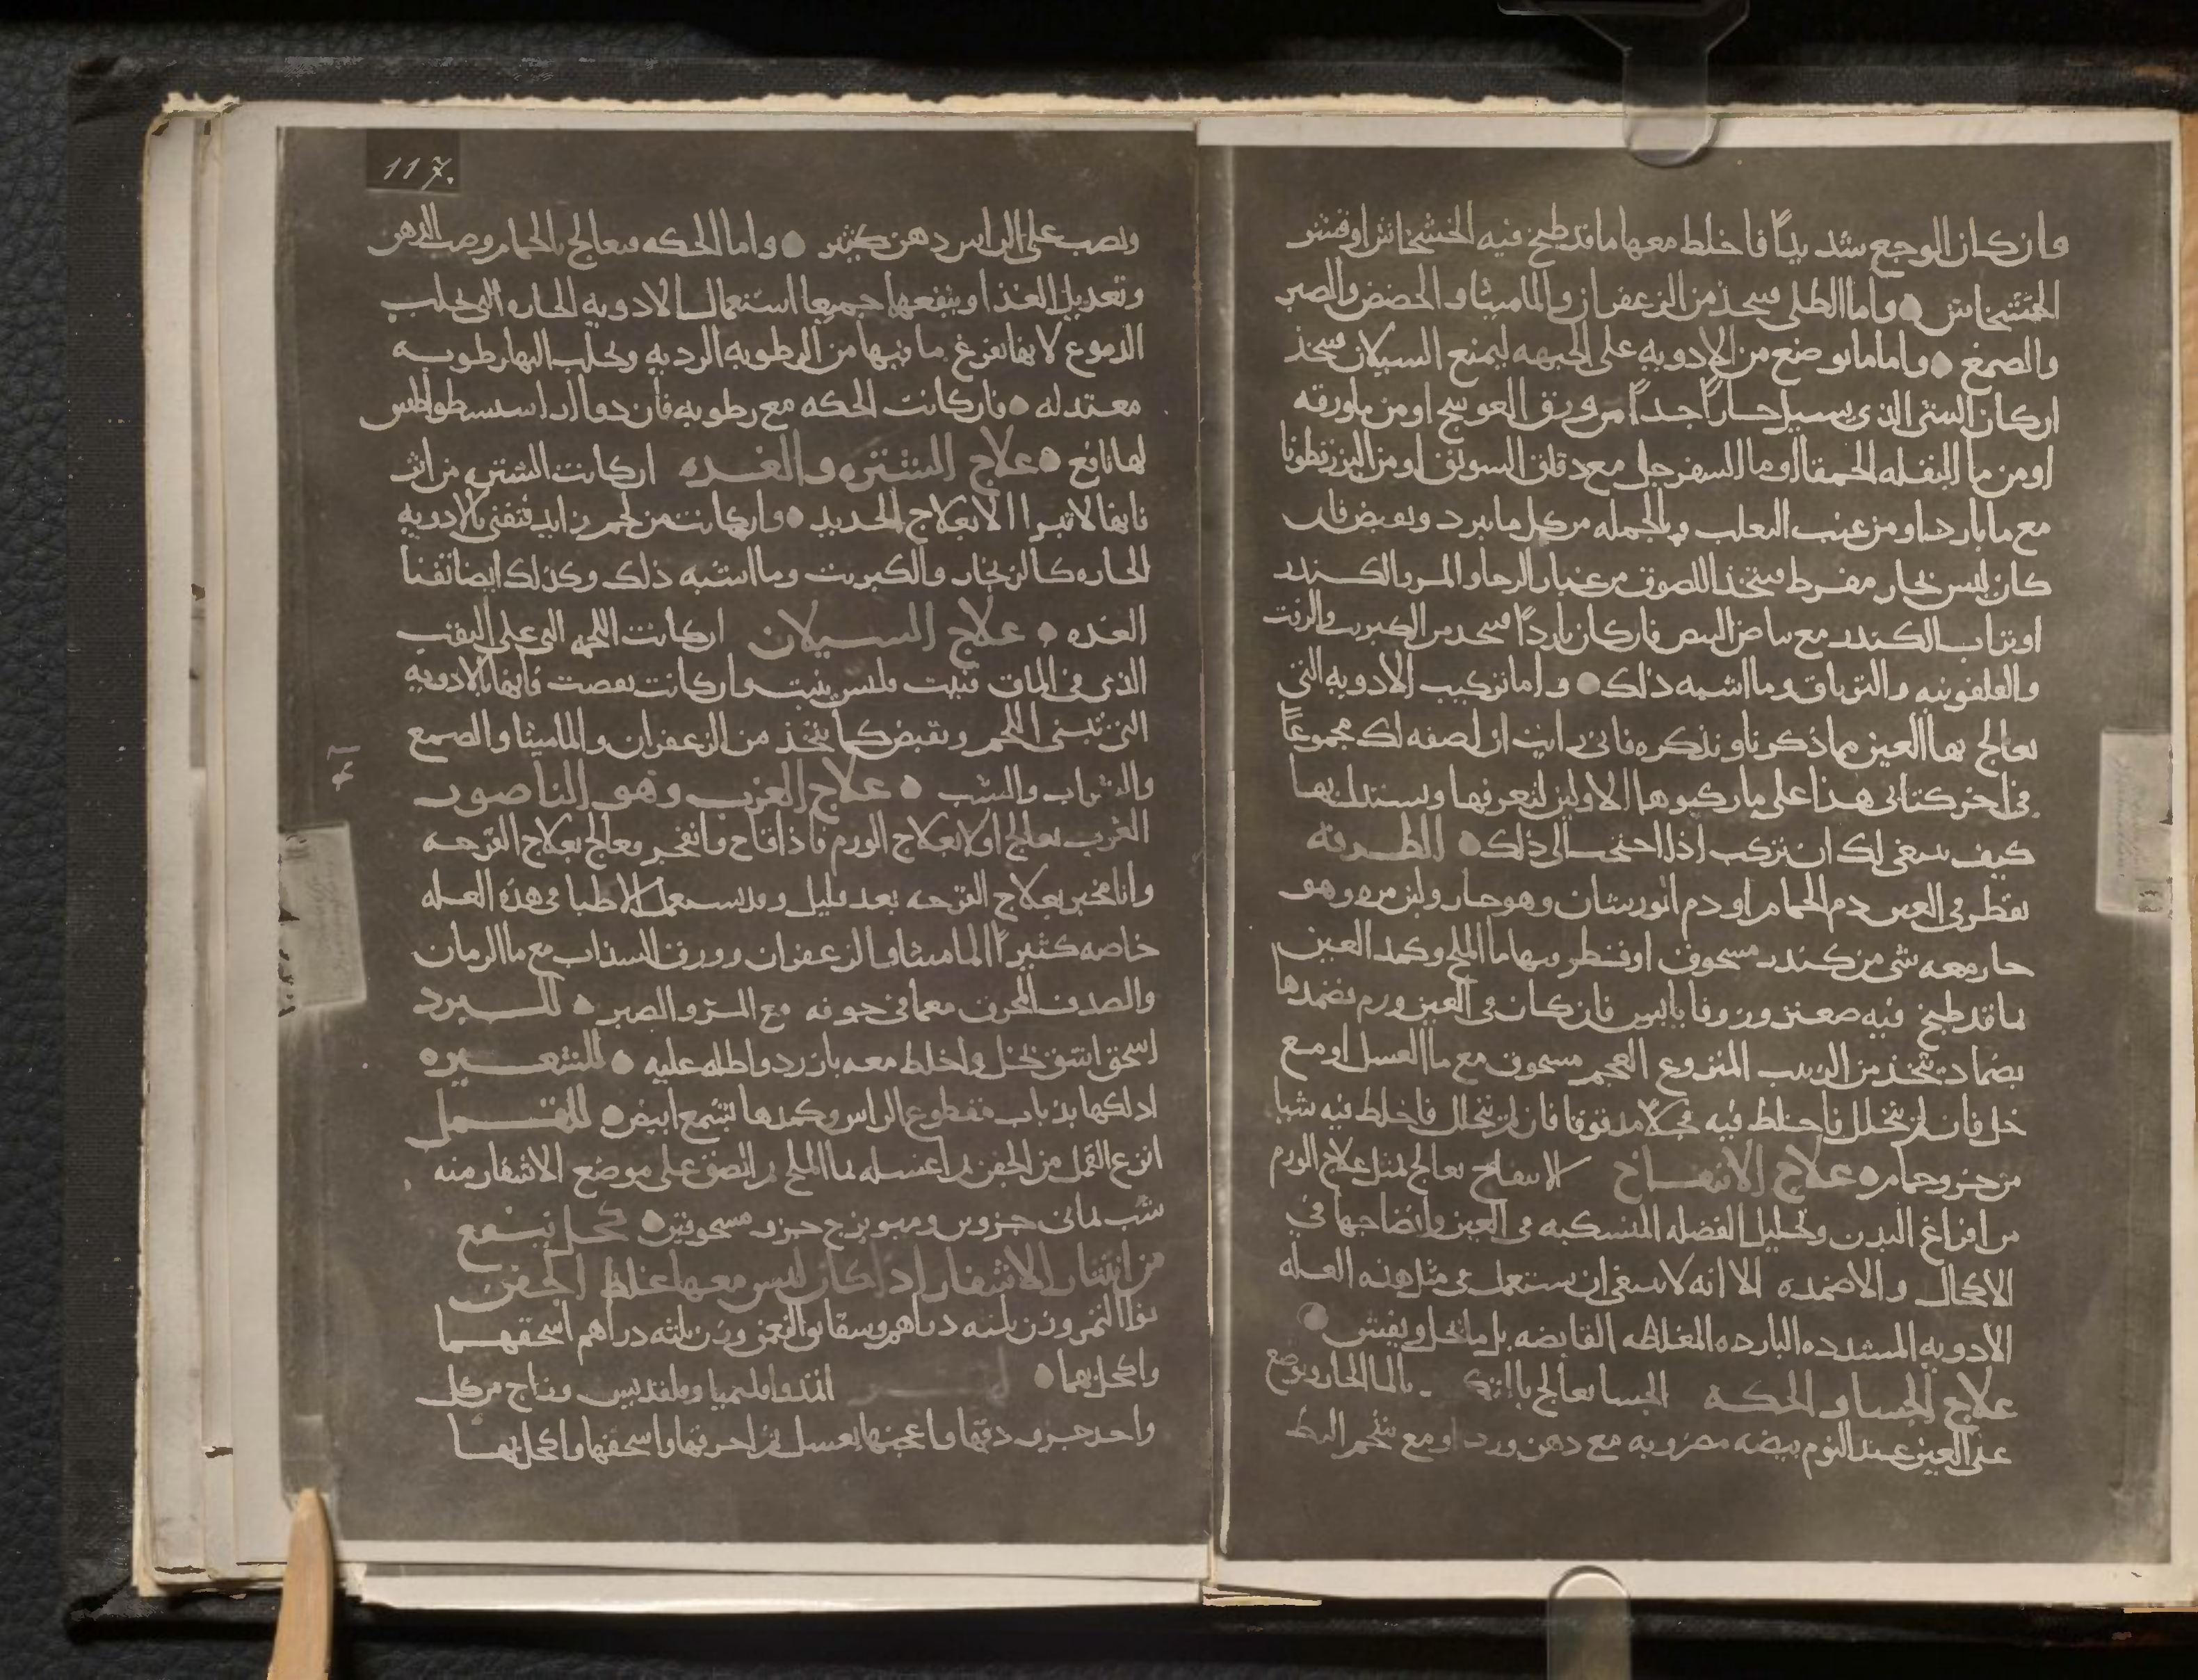 وان كان الوجع شديداً فاخلط معها ما قد طبخ فيه الخشخاش او قشر
الخشخاش واما الطلى فيتخذ من الزعفران والماميثا والحضض والصبر
والصمغ واما ما يوضع من الادويه على الجبهه ليمنع السيلان فيتخذ
ان كان الشى الذى يسيل حاراً جداً من ورق العوسج او من ما ورقه
او من ما البقله الحمقا او ما السفرجل مع دقاق السويق او من البزرقطونا
مع ما بارد او من عنب الثعلب وبالجمله من كل ما يبرد ويقبض فان
كان ليس بحار مفرط فيتخذ اللصوق من غبار الرحا والمر والكندر
او تراب الكندر مع بياض البيض فان كان بارداً فيتخذ من الكبريت والزفت
والقلفونيه والترياق وما اشبه ذلك واما تركيب الادويه التى
يعالج بها العين مما ذكرنا ونذكره فانى رايت ان اصفه لك مجموعاً
فى اخر كتابى هذا على ما ركبوها الاولين لتعرفها وتستدل بها
كيف ينبغى لك ان تركب اذا احتجت الى ذلك الطرفه
يقطر فى العين دم الحمام او دم الورشان وهو حار ولبن مره وهو
حار معه شى من كندر مسحوق او قطر فيها ما الملح وكمد العين
بما قد طبخ فيه صعتر وزوفا يابس فان كان فى العين ورم فضمدها
بضماد يتخذ من الزبيب المنزوع العجم مسحوق مع ما العسل او مع
خل فان لم يتحلل فاخلط فيه فجلا مدقوقا فان لم يتحلل فاخلط فيه شيا
من خرو حمام علاج الانتفاخ الانتفاخ يعالج بمثل علاج الورم
من افراغ البدن وتحليل الفضله المنسكبه فى العين وانضاجها فى
الاكحال والاضمده الا انه لا ينبغى ان يستعمل فى مثل هذه العله
الادويه المشدده البارده المغلظه القابضه بل ما يحل ويفش
علاج الجسا والحكه الجسا يعالج بالتكميد بالما الحار ويوضع
على العين عند النوم بيضه مضروبه مع دهن ورد او مع شحم البط
117.
ويصب على الراس دهن كثير واما الحكه فيعالج بالحمام وصب الدهن
وتعديل الغذا وينفعها جميعا استعمال الادويه الحاره التى تجلب
الدموع لانها تفرغ ما فيها من الرطوبه الرديه وتجلب اليها رطوبه
معتدله فان كانت الحكه مع رطوبه فان دوا اراسسطراطس
لها نافع علاج الشتره والغده ان كانت الشتره من اثر
فانها لا تبرا الا بعلاج الحديد وان كانت من لحم زايد فتفنى بالادويه
الحاره كالزنجار والكبريت وما اشبه ذلك وكذلك ايضا تفنا
الغده علاج السيلان ان كانت اللحمه التى على الثقب
الذى فى الماق فنيت فليس ينبت وان كانت نقصت فانها بالادويه
التى تبنى اللحم وتقبض كما يتخذ من الزعفران والماميثا والصمغ
والشراب والشب علاج الغرب وهو الناصور
الغرب يعالج اولا بعلاج الورم فاذا قاح وانفجر يعالج بعلاج القرحه
وانا مخبر بعلاج القرحه بعد قليل وقد يستعمل الاطبا فى هذه العله
خاصه كثيراً الماميثا والزعفران وورق السذاب مع ما الرمان
والصدف المحرق معما فى جوفه مع المر والصبر للبرد
اسحق اشق بخل واخلط معه بارزد واطله عليه للشعيره
ادلكها بذباب مقطوع الراس وكمدها بشمع ابيض للقمل
انزع القمل من الجفن ثم اغسله بما الملح ثم الصق على موضع الاشفار منه
شب يمانى جزوين وميويزج جزو مسحوقين كحل ينفع
من انتثار الاشفار اذا كان ليس معها غلظ الجفن
نوا التمر وزن ثلثه دراهم وسقانوا النعر وزن ثلثه دراهم اسحقهما
واكحل بهما وقلقديس وزاج من كل
واحد جزو دقها واعجنها بعسل ثم احرقها واسحقها واكحل بها